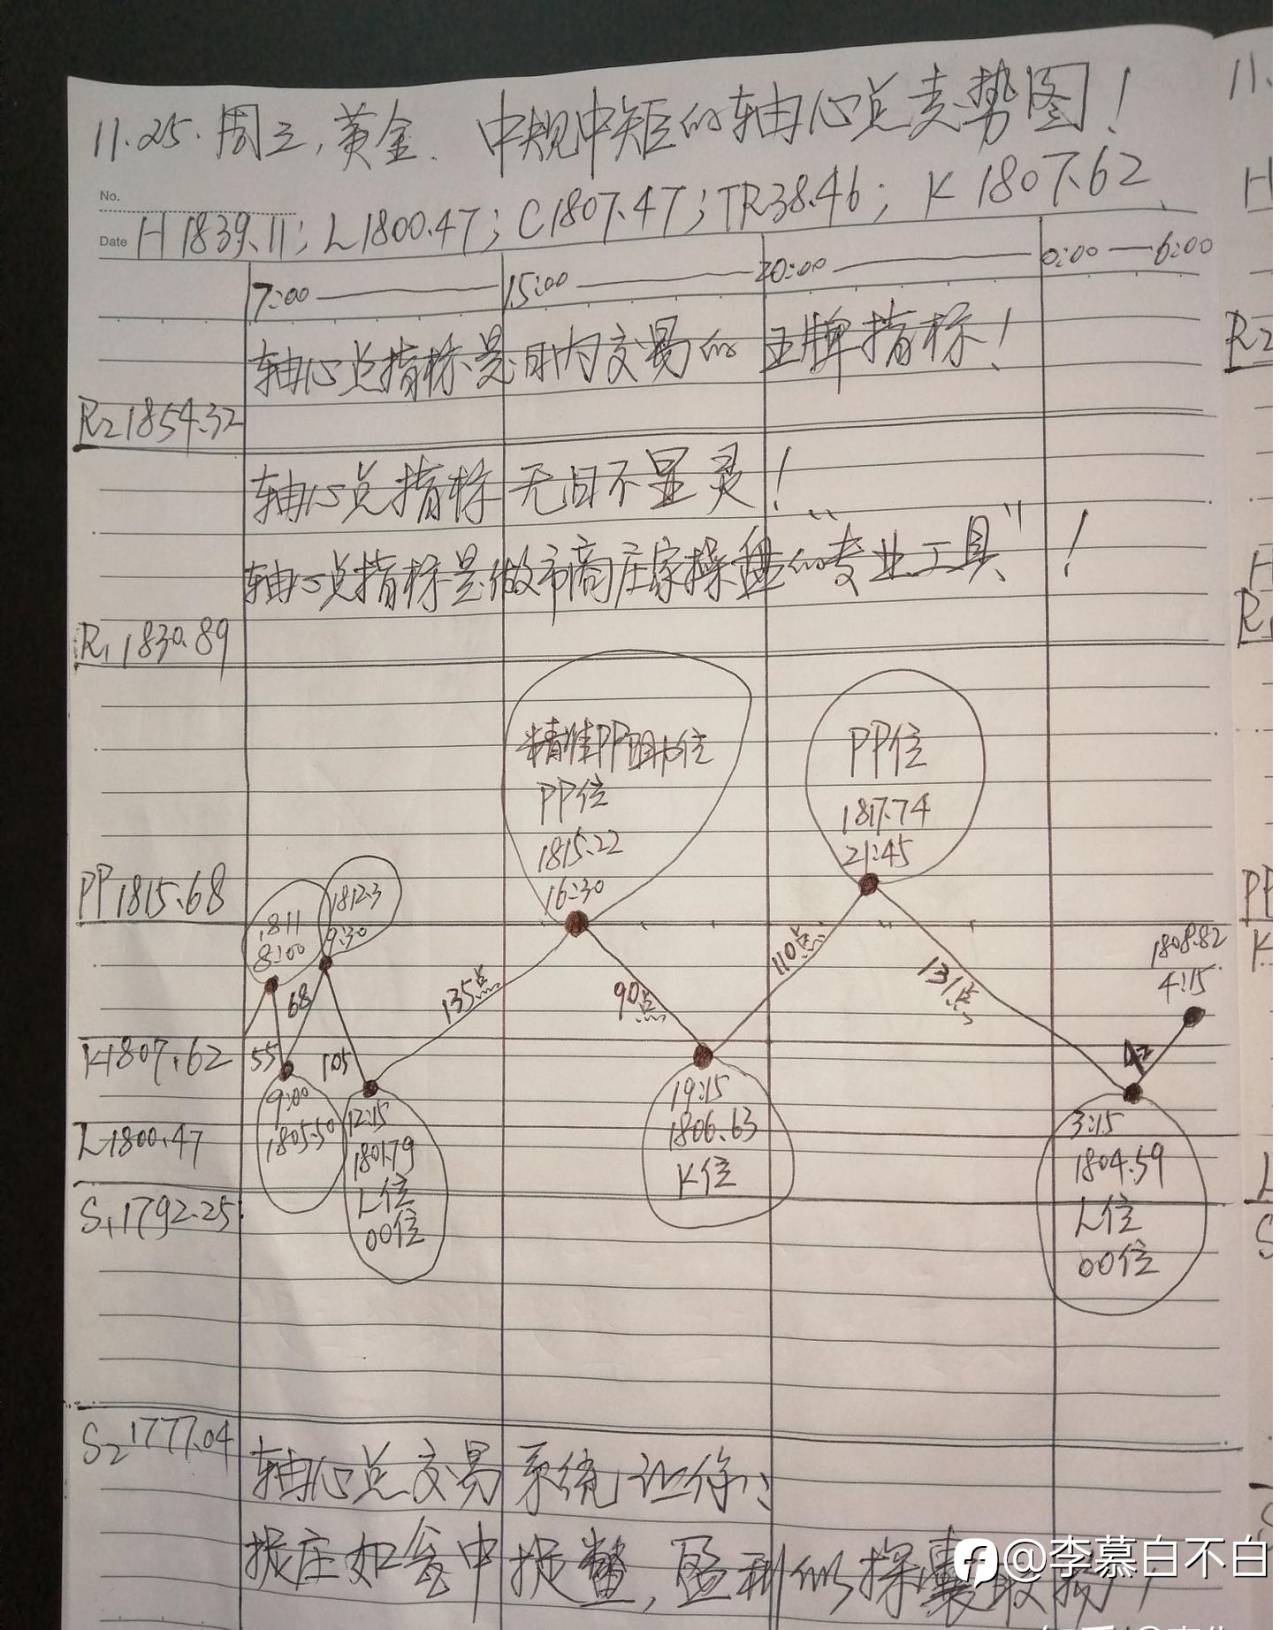 11.25.周三,黄金. 中规中矩的轴心点走势图!
No.
Date H1839.11; L1800.47; C1807.47; TR38.46; K 1807.62
7:00 15:00 20:00 0:00—6:00
轴心点指标是日内交易的 王牌指标!
R2 1854.32
轴心点指标 无日不显灵!
轴心点指标是做市商庄家操盘的“专业工具”!
R1 1830.89
精准PP阻力位
PP位
1815.22
16:30
PP位
1817.74
21:45
PP1815.68
1811
8:00
1812.3
9:30
135点
90点
110点
131点
1808.82
4:15
68
K1807.62
55
105
42
9:00
1805.50
12:15
1801.79
L位
00位
19:15
1806.63
K位
3:15
1804.59
L位
00位
L1800.47
S1 1792.25
S2 1777.04
轴心点交易系统,让你:
捉庄如瓮中捉鳖,盈利似探囊取物!
@李慕白不白
11.
H
R2
H
R1
PP
K
L
S